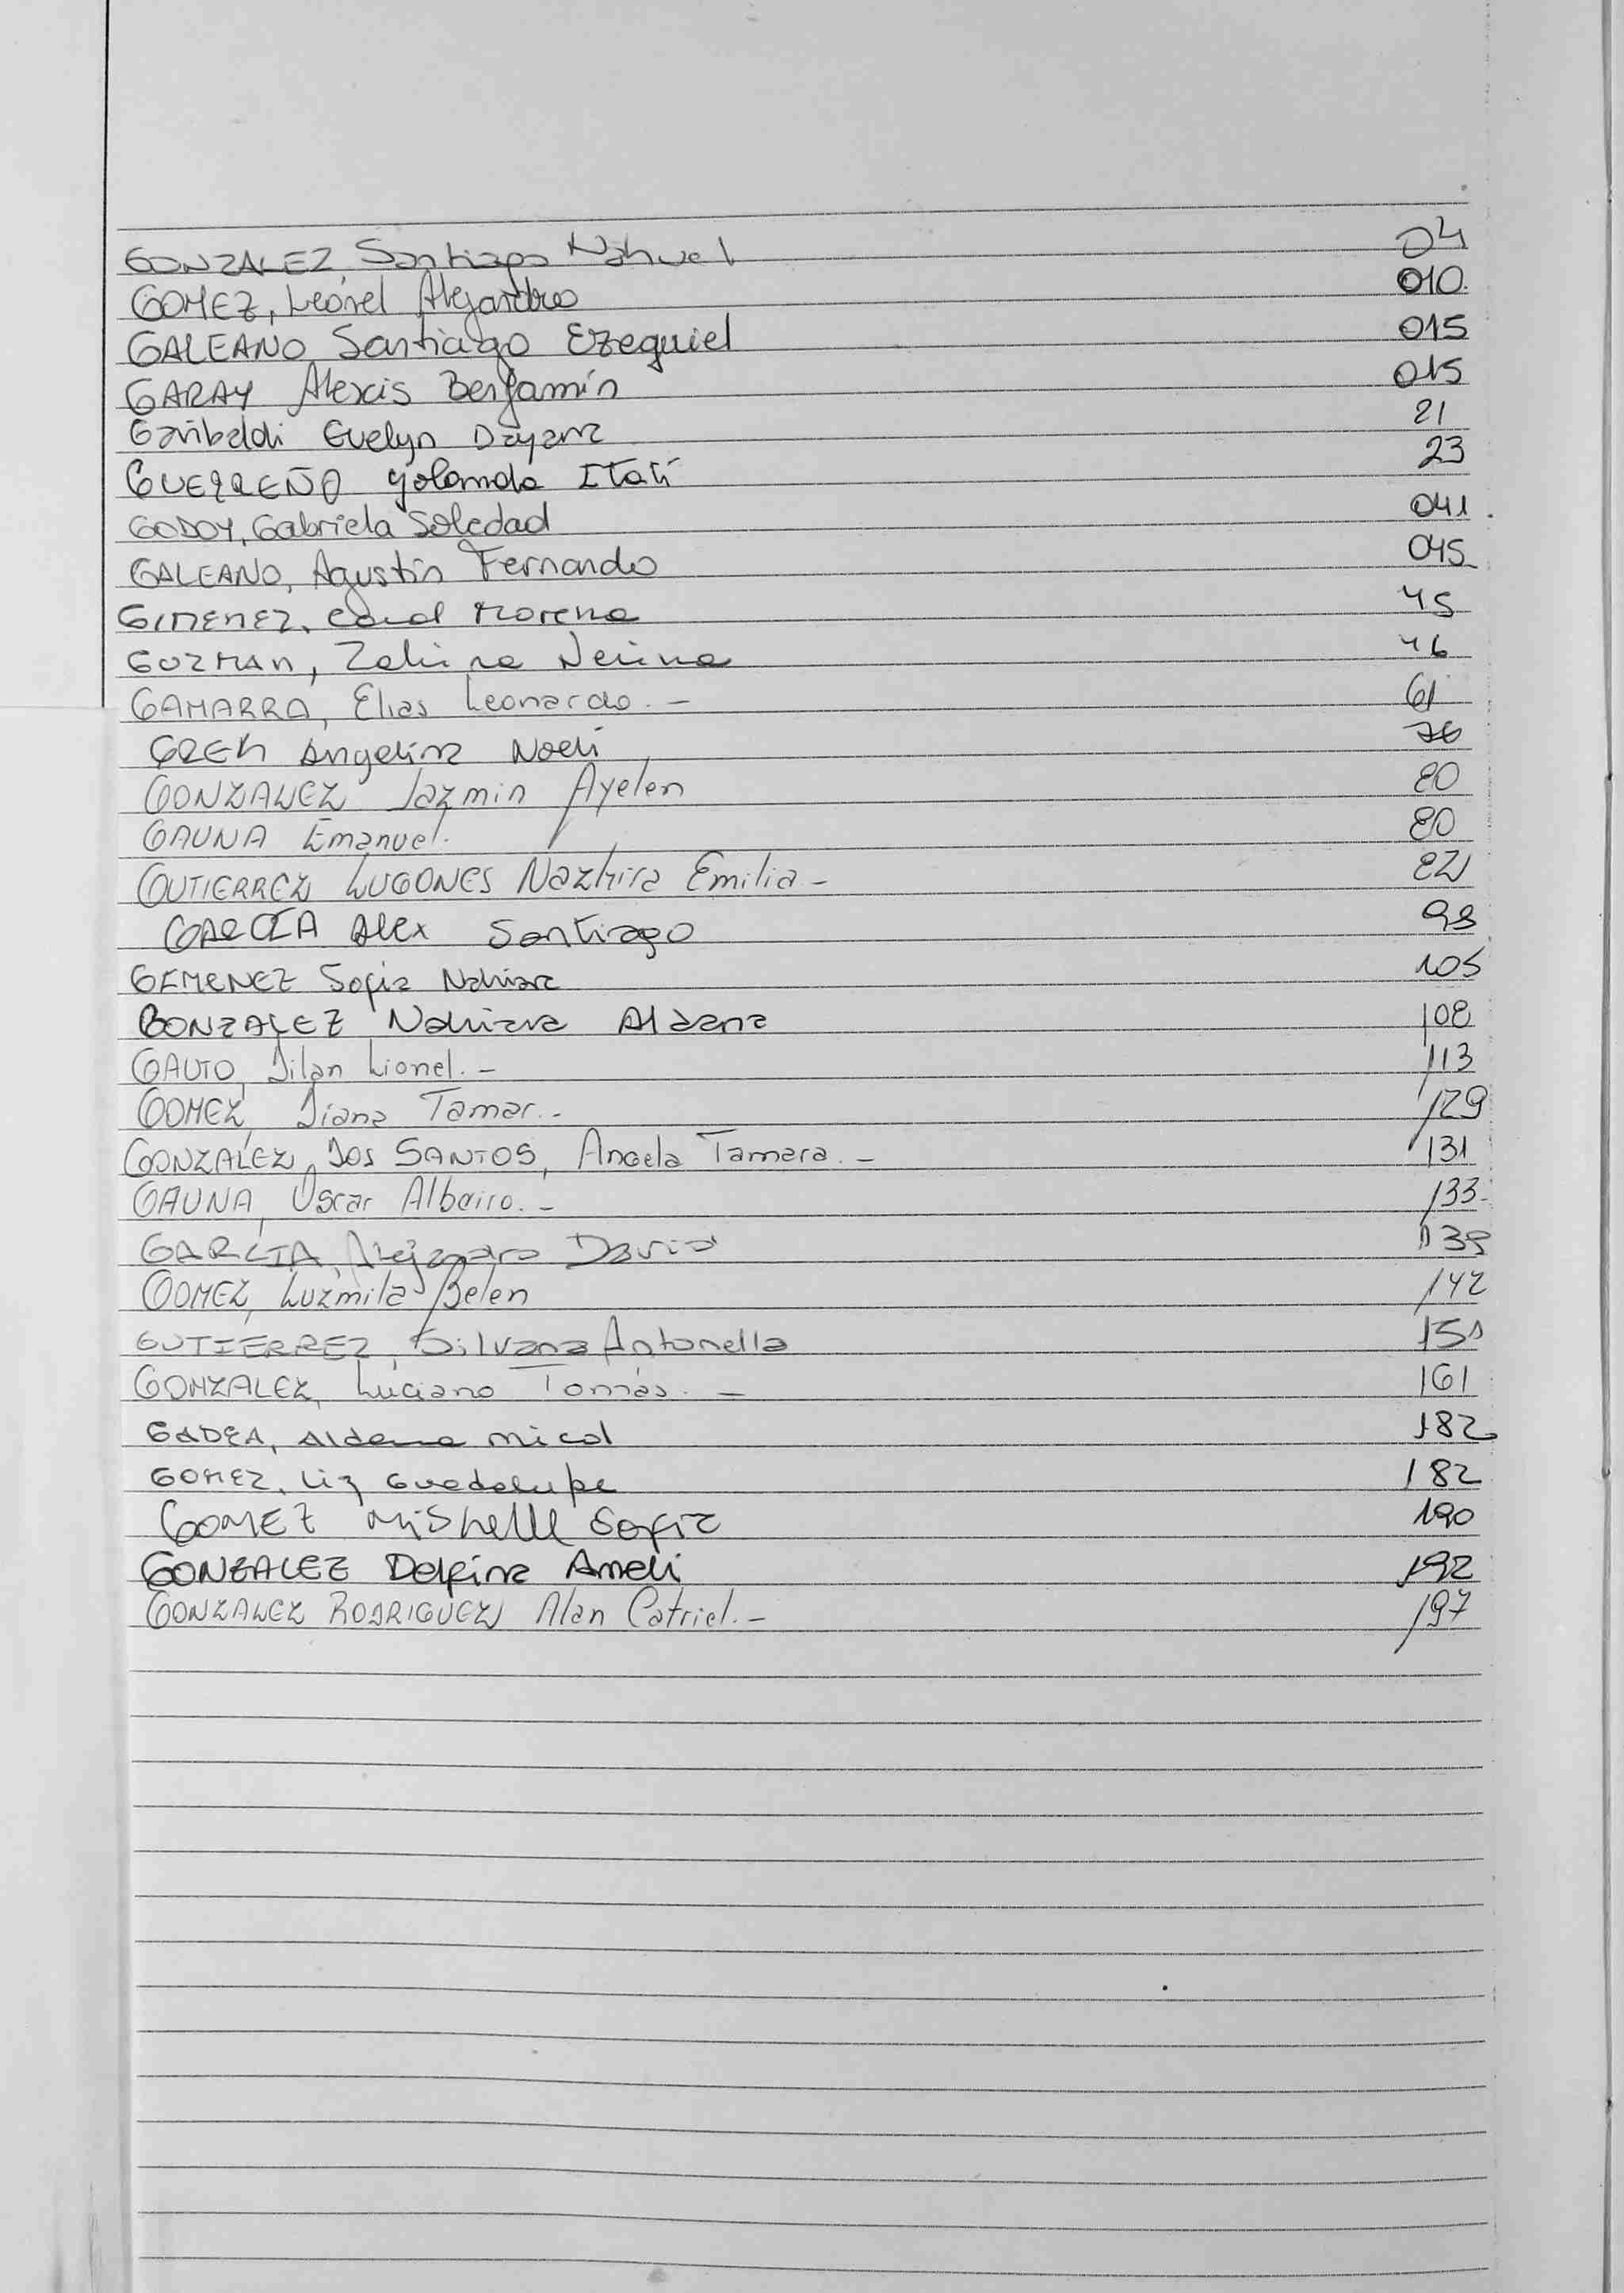 GONZALEZ, Santiago Nahuel 04
GOMEZ, Leonel Alejandro 010
GALEANO Santiago Ezequiel 015
GARAY Alexis Benjamín 015
Garibaldi Evelyn Dayana 21
GUERREÑO Yolanda Itatí 23
GODOY, Gabriela Soledad 041
GALEANO, Agustín Fernando 045
GIMENEZ, Carol Morena 45
GUZMAN, Zahira Nerina 46
GAMARRA, Elias Leonardo.- 61
GREK Angelina Noeli 76
GONZALEZ Jazmin Ayelen 80
GAUNA Emanuel. 80
GUTIERREZ LUGONES Nazhira Emilia- 82
GARCIA Alex Santiago 98
GEMENEZ Sofia Nahiara 105
GONZALEZ Nahiara Aldana 108
GAUTO, Dilan Lionel.- 113
GOMEZ, Diana Tamar.- 129
GONZALEZ, Dos SANTOS, Angela Tamara.- 131
GAUNA, Oscar Albairo.- 133-
GARCIA, Alejandro David 139
GOMEZ, Luzmila Belen 142
GUTIERREZ, Silvana Antonella 151
GONZALEZ, Luciano Tomás.- 161
GADEA, Aldana Micol 182
GOMEZ, Liz Guadalupe 182
GOMEZ Mishelle Sofia 190
GONZALEZ Delfina Ameli 192
GONZALEZ RODRIGUEZ Alan Catriel.- 197